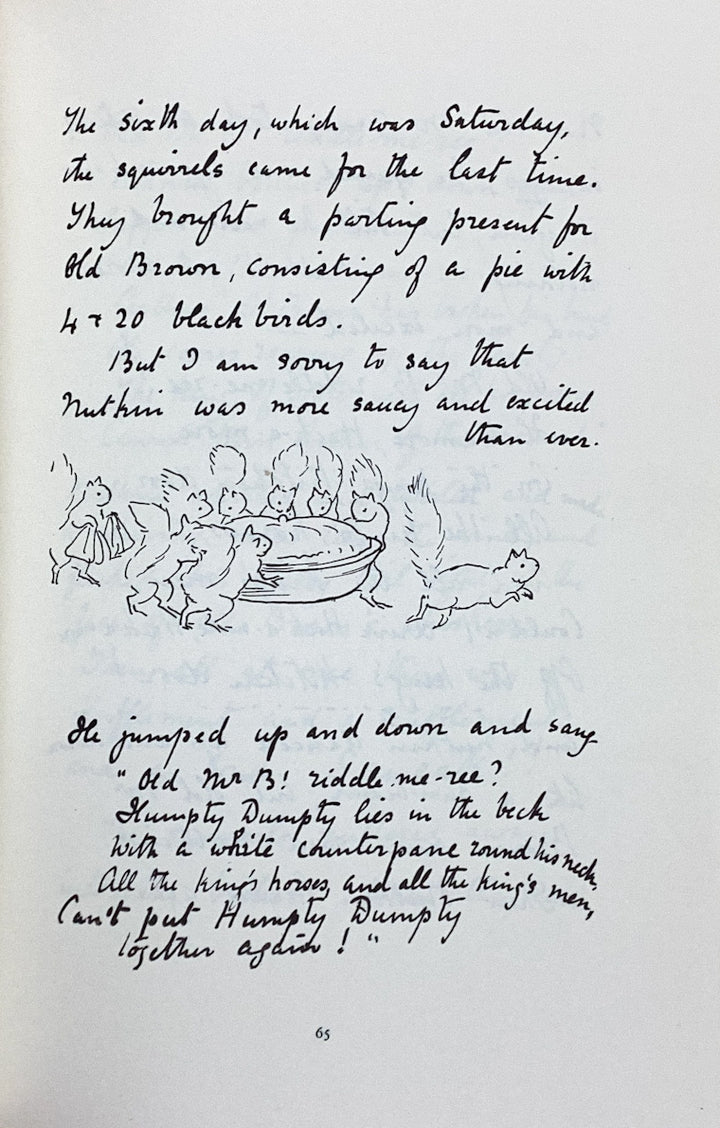 The sixth day, which was Saturday,
the squirrels came for the last time.
They brought a parting present for
Old Brown, consisting of a pie with
4 + 20 black birds.
But I am sorry to say that
Nutkin was more saucy and excited
than ever.
He jumped up and down and sang
" Old Mr B! riddle-me-ree?
Humpty Dumpty lies in the beck
With a white counterpane round his neck,
All the king's horses, and all the king's men,
Can't put Humpty Dumpty
together again! "
65